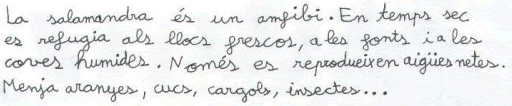 La salamandra és un amfibi. En temps sec
es refugia als llocs frescos, a les fonts i a les
coves humides. Només es reprodueixen aigües netes.
Menja aranyes, cucs, cargols, insectes...